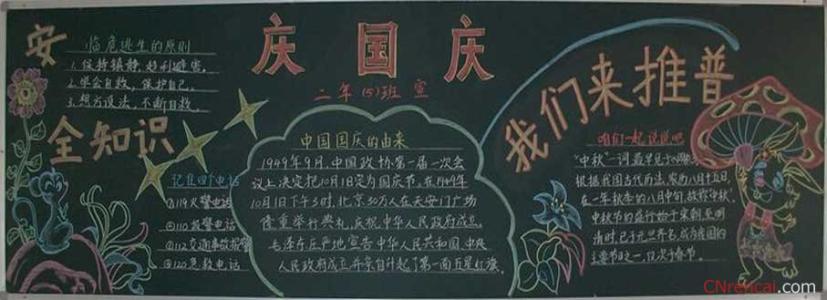 安
全知识
临危逃生的原则
1.保持镇静,趋利避害。
2.学会自救,保护自己。
3.想方设法,不断自救。
记住四个电话
①119火警电话
②110报警电话
③112交通事故报警
④120急救电话
庆国庆
二年(5)班 宣
中国国庆的由来
1949年9月,中国政协第一届一次会
议上决定把10月1日定为国庆节,在1949年
10月1日下午3时,北京30万人在天安门广场
隆重举行典礼,庆祝中华人民政府成立。
毛泽东庄严地宣告中华人民共和国,中央
人民政府成立并亲自升起了第一面五星红旗。
我们来推普
咱们一起说说吧
"中秋"一词最早见于
根据我国古代历法,农历八月十五日
在一年秋季的八月中旬,故称中秋。
中秋节的盛行始于宋朝,至明
清时,已于元旦齐名,成为我国的
主要节日之一,仅次于春节。
CNrencai.com